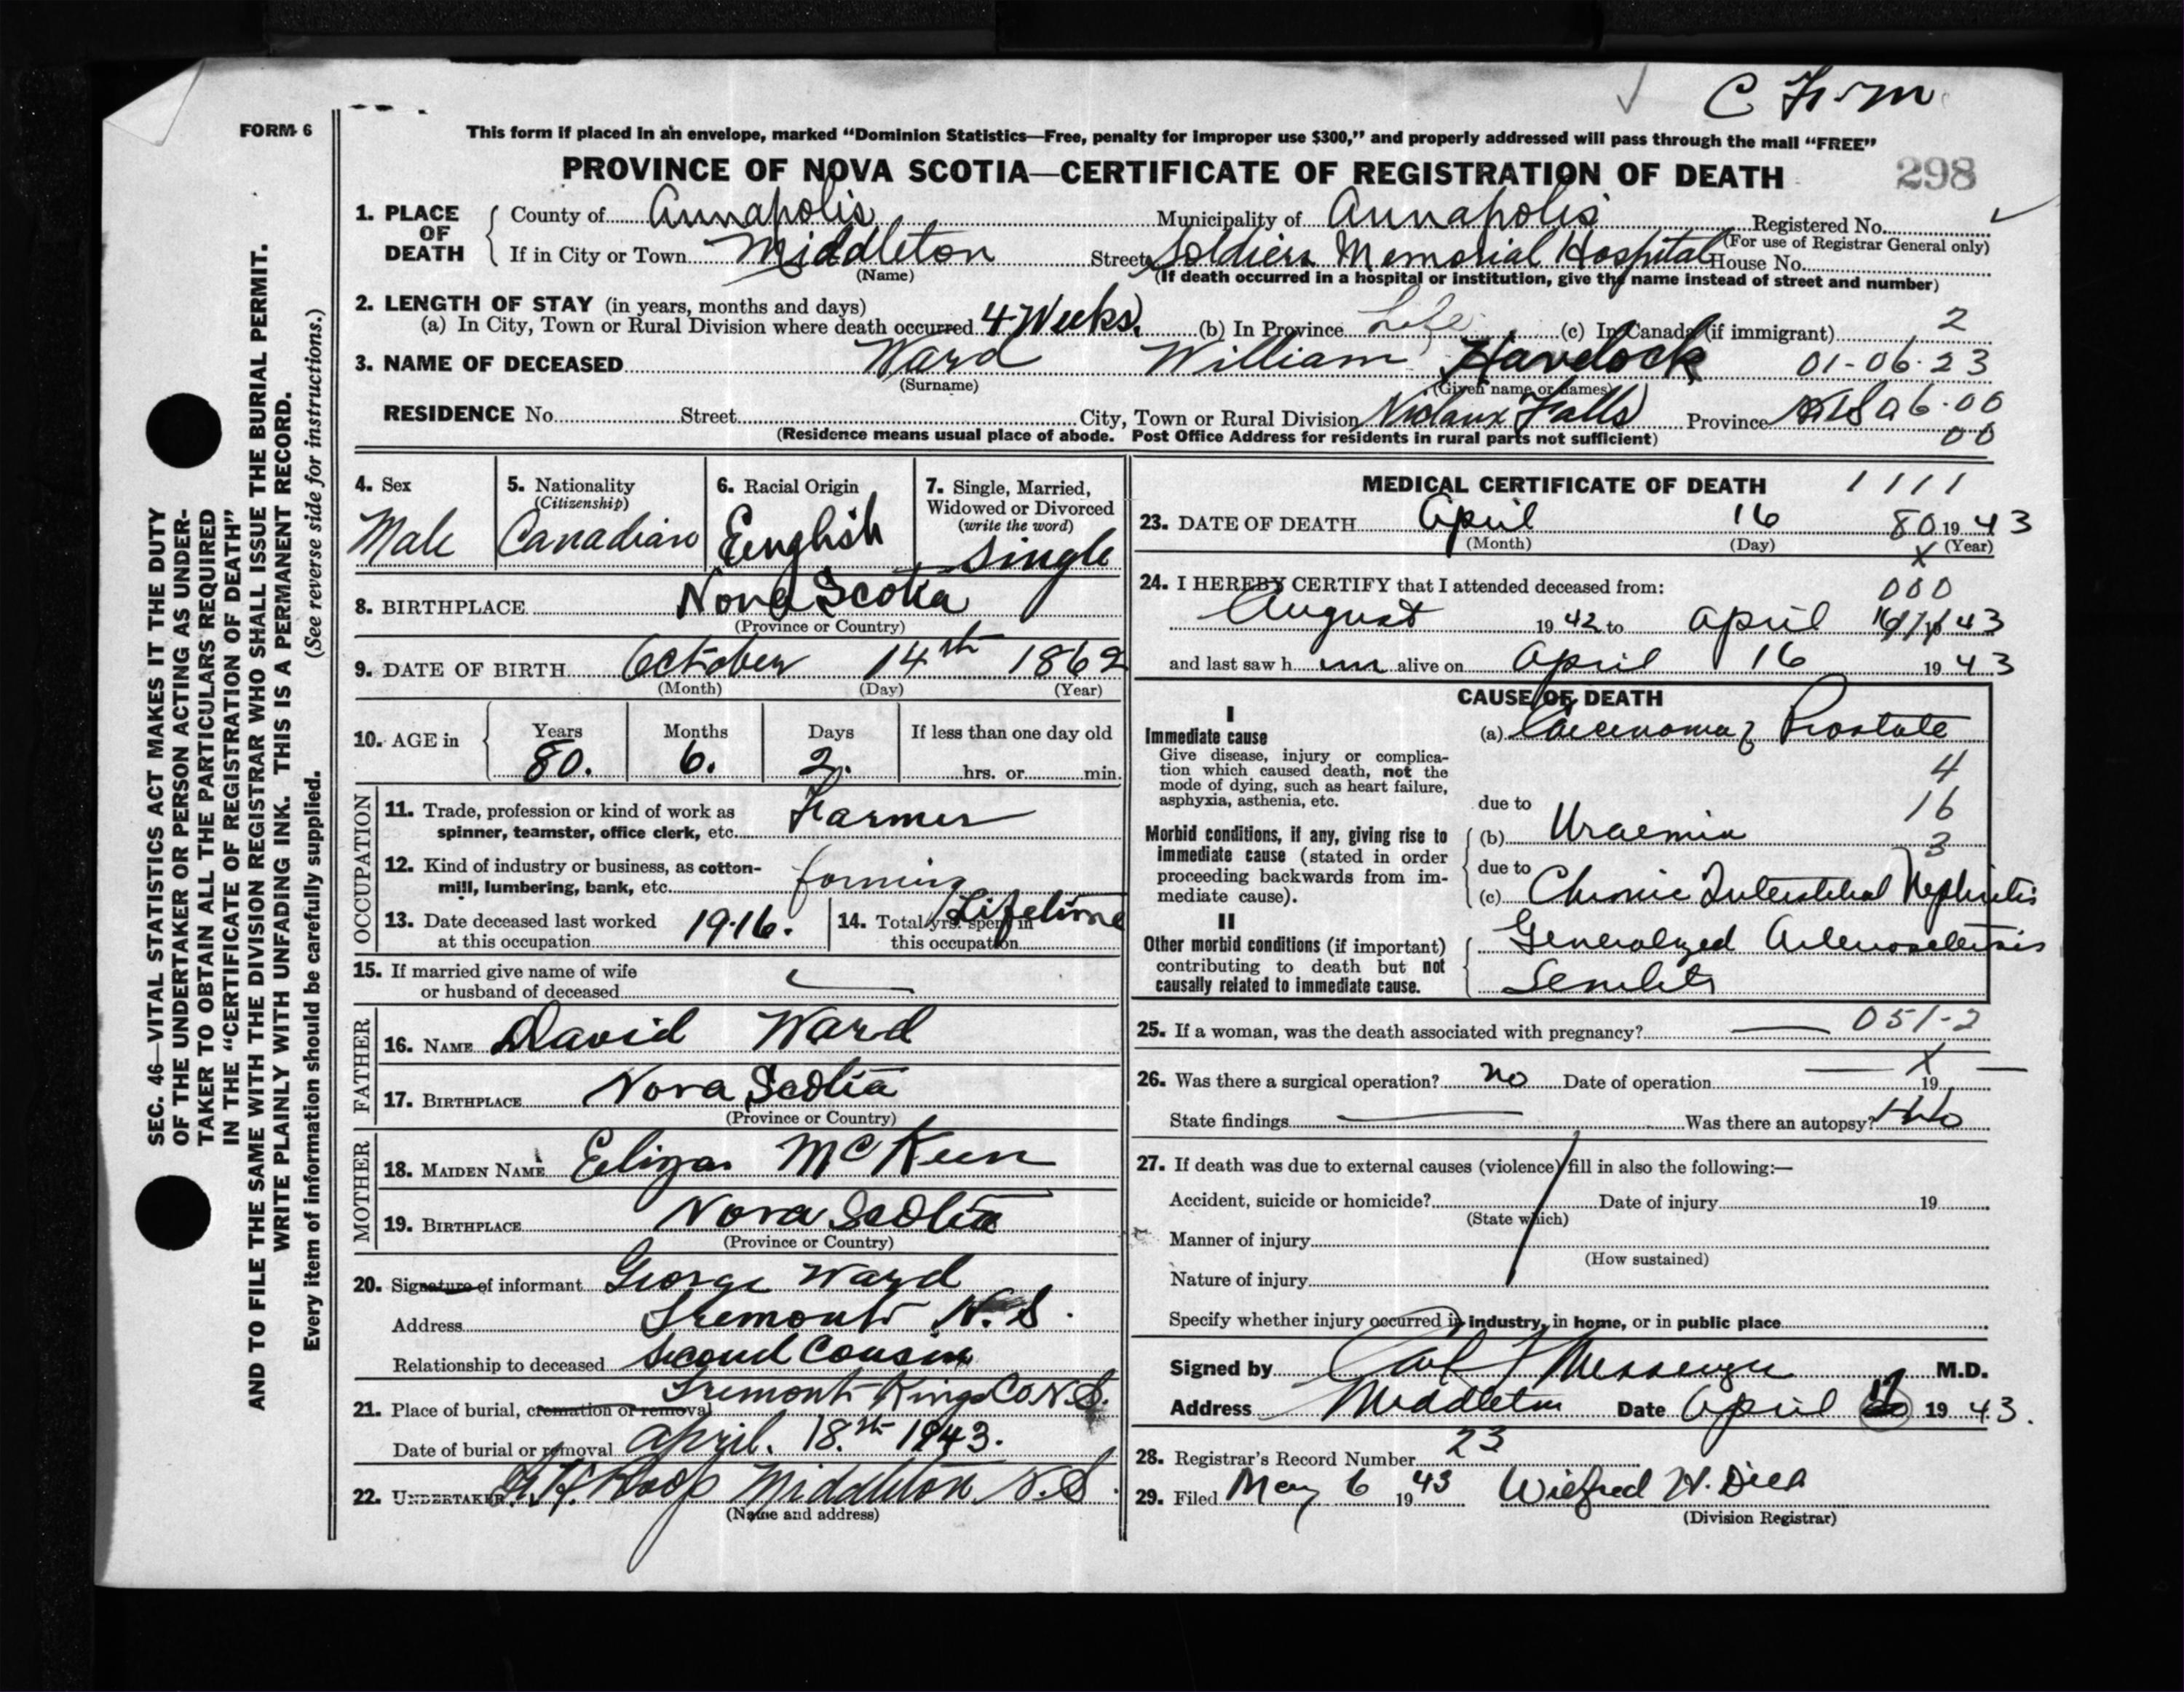 C Form
FORM 6
This form if placed in an envelope, marked “Dominion Statistics—Free, penalty for improper use $300,” and properly addressed will pass through the mail “FREE”
PROVINCE OF NOVA SCOTIA—CERTIFICATE OF REGISTRATION OF DEATH 298
1. PLACE OF DEATH County of Annapolis Municipality of Annapolis Registered No.
(For use of Registrar General only)
If in City or Town Middleton Street Soldiers Memorial Hospital House No.
(Name) (If death occurred in a hospital or institution, give the name instead of street and number)
2. LENGTH OF STAY (in years, months and days)
(a) In City, Town or Rural Division where death occurred 4 Weeks. (b) In Province Life (c) In Canada (if immigrant) 2
3. NAME OF DECEASED Ward William Havelock 01-06-23
(Surname) (Given name or names)
RESIDENCE No. Street City, Town or Rural Division Nictaux Falls Province 06-00
(Residence means usual place of abode. Post Office Address for residents in rural parts not sufficient) 00
4. Sex Male
5. Nationality (Citizenship) Canadian
6. Racial Origin English
7. Single, Married, Widowed or Divorced (write the word) Single
8. BIRTHPLACE Nova Scotia
(Province or Country)
9. DATE OF BIRTH October 14th 1862
(Month) (Day) (Year)
10. AGE in Years 80. Months 6. Days 2. If less than one day old hrs. or min.
OCCUPATION
11. Trade, profession or kind of work as spinner, teamster, office clerk, etc. Farmer
12. Kind of industry or business, as cotton-mill, lumbering, bank, etc. farming
13. Date deceased last worked at this occupation 1916.
14. Total yrs. spent in this occupation Lifetime
15. If married give name of wife or husband of deceased
FATHER
16. NAME David Ward
17. BIRTHPLACE Nova Scotia
(Province or Country)
MOTHER
18. MAIDEN NAME Eliza McKeen
19. BIRTHPLACE Nova Scotia
(Province or Country)
20. Signature of informant George Ward
Address Tremont N.S.
Relationship to deceased Second Cousin
21. Place of burial, cremation or removal Tremont Kings Co N.S.
Date of burial or removal April 18th 1943.
22. UNDERTAKER Roop Middleton N.S.
(Name and address)
MEDICAL CERTIFICATE OF DEATH 1111
23. DATE OF DEATH April 16 80 1943
(Month) (Day) (Year)
x
24. I HEREBY CERTIFY that I attended deceased from: 000
August 1942 to April 16 1943
and last saw him alive on April 16 1943
CAUSE OF DEATH
I
Immediate cause
Give disease, injury or complication which caused death, not the mode of dying, such as heart failure, asphyxia, asthenia, etc.
(a) Carcinoma of Prostate
4
due to 16
Morbid conditions, if any, giving rise to immediate cause (stated in order proceeding backwards from immediate cause).
(b) Uraemia
3
due to
(c) Chronic Interstitial Nephritis
II
Other morbid conditions (if important) contributing to death but not causally related to immediate cause.
Generalized Arteriosclerosis
Senility
25. If a woman, was the death associated with pregnancy? 051-2
x
26. Was there a surgical operation? no Date of operation 19
State findings Was there an autopsy? No
27. If death was due to external causes (violence) fill in also the following:—
Accident, suicide or homicide? Date of injury 19
(State which)
Manner of injury
(How sustained)
Nature of injury
Specify whether injury occurred in industry, in home, or in public place
Signed by Messenger M.D.
Address Middleton Date April 1943.
28. Registrar's Record Number 23
29. Filed May 6 1943 Wilfred H. Dill
(Division Registrar)
SEC. 46—VITAL STATISTICS ACT MAKES IT THE DUTY
OF THE UNDERTAKER OR PERSON ACTING AS UNDER-
TAKER TO OBTAIN ALL THE PARTICULARS REQUIRED
IN THE “CERTIFICATE OF REGISTRATION OF DEATH”
AND TO FILE THE SAME WITH THE DIVISION REGISTRAR WHO SHALL ISSUE THE BURIAL PERMIT.
WRITE PLAINLY WITH UNFADING INK. THIS IS A PERMANENT RECORD.
Every item of information should be carefully supplied. (See reverse side for instructions.)